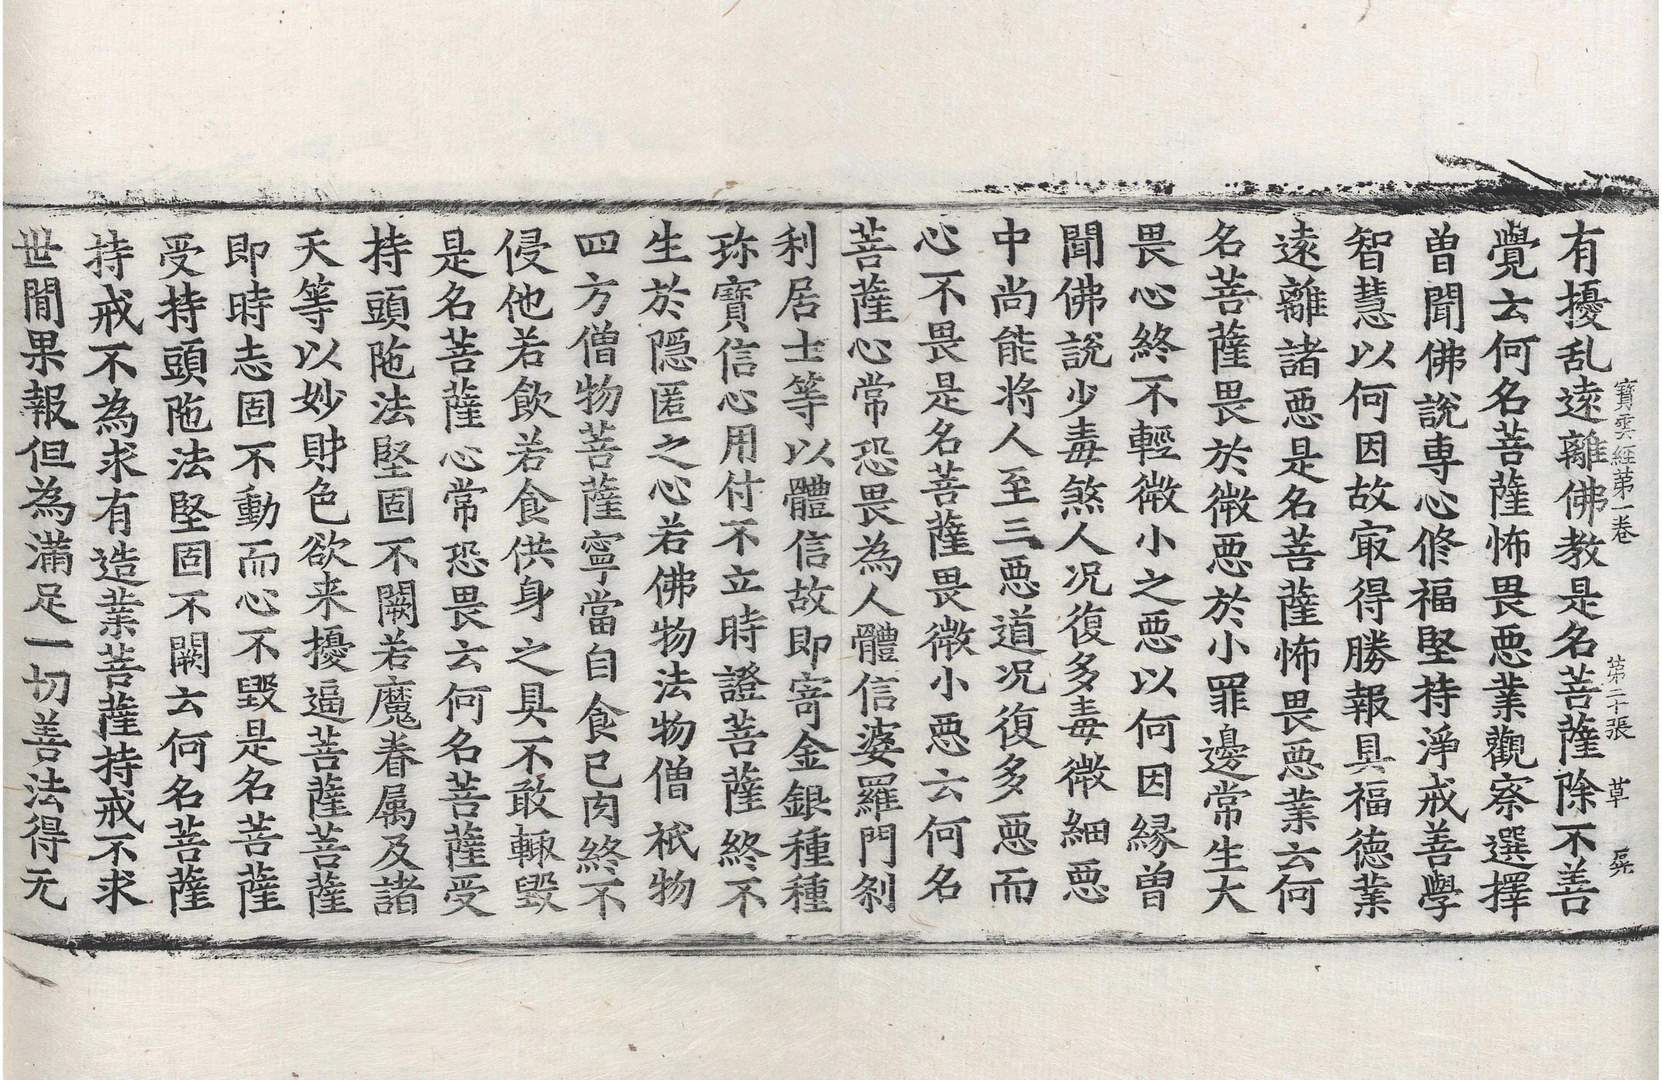 有擾乱遠離佛教是名菩薩除不善
寶雲經第一卷 第二十張 草
覺云何名菩薩怖畏惡業觀察選擇
曽聞佛說専心修福堅持淨戒善學
智慧以何因故㝡得勝報具福德業
遠離諸惡是名菩薩怖畏惡業云何
名菩薩畏於微惡於小罪邊常生大
畏心終不輕微小之惡以何因縁曽
聞佛說少毒煞人况復多毒微細惡
中尚能將人至三惡道况復多惡而
心不畏是名菩薩畏微小惡云何名
菩薩心常恐畏為人體信婆羅門刹
利居士等以體信故即寄金銀種種
珎寶信心用付不立時證菩薩終不
生於隱匿之心若佛物法物僧祇物
四方僧物菩薩寧當自食已肉終不
侵他若飲若食供身之具不敢輙毀
是名菩薩心常恐畏云何名菩薩受
持頭陁法堅固不闕若魔眷属及諸
天等以妙財色欲来擾逼菩薩菩薩
即時志固不動而心不毀是名菩薩
受持頭陁法堅固不闕云何名菩薩
持戒不為求有造業菩薩持戒不求
世間果報但為滿足一切善法得无